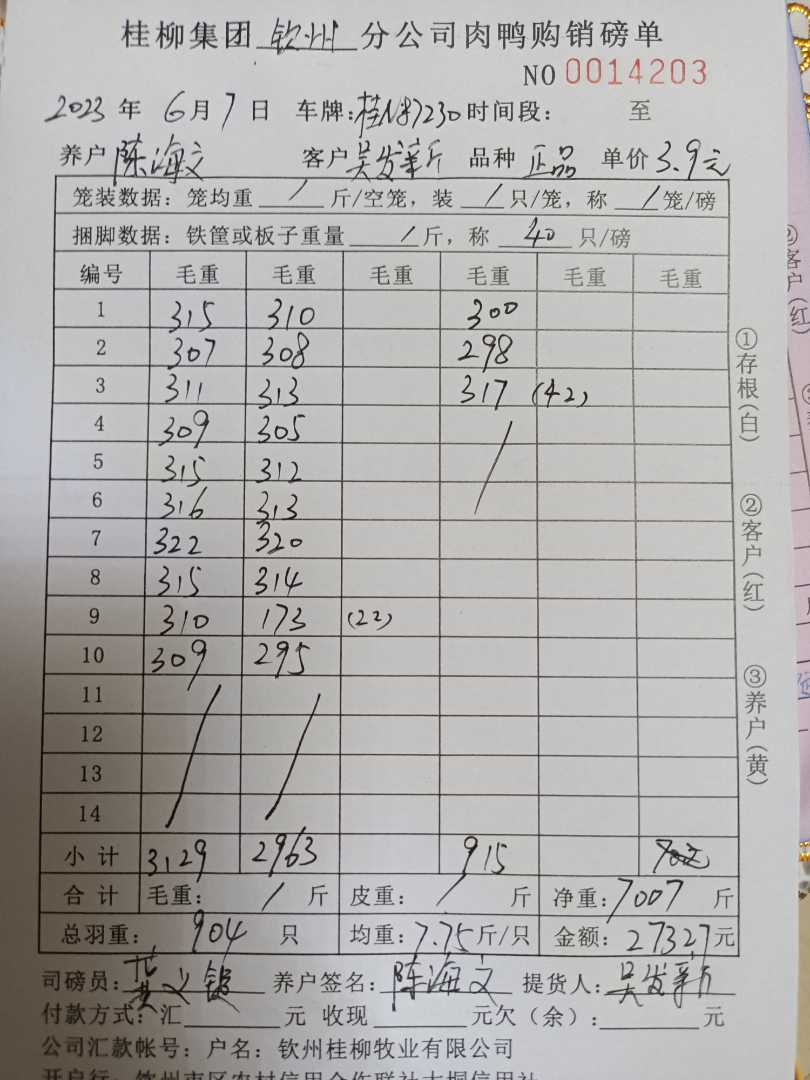 桂柳集团 钦州 分公司肉鸭购销磅单
NO 0014203
2023 年 6 月 7 日 车牌: 桂N87230 时间段: 至
养户 陈海文 客户 吴发新 品种 正品 单价 3.9元
笼装数据: 笼均重 / 斤/空笼, 装 / 只/笼, 称 / 笼/磅
捆脚数据: 铁筐或板子重量 / 斤, 称 40 只/磅
编号 毛重 毛重 毛重 毛重 毛重 毛重
1 315 310 300
2 307 308 298
3 311 313 317 (42)
4 309 305 /
5 315 312
6 316 313
7 322 320
8 315 314
9 310 173 (22)
10 309 295
11 / /
12
13
14
小计 3129 2963 915
合计 毛重: / 斤 皮重: / 斤 净重: 7007 斤
总羽重: 904 只 均重: 7.75 斤/只 金额: 27327 元
司磅员: 黄文 养户签名: 陈海文 提货人: 吴发新
付款方式: 汇 元 收现 元欠(余): 元
公司汇款帐号: 户名: 钦州桂柳牧业有限公司
开户行: 钦州市区农村信用合作联社大垌信用社
①存根(白)
②客户(红)
③养户(黄)
②客户(红)